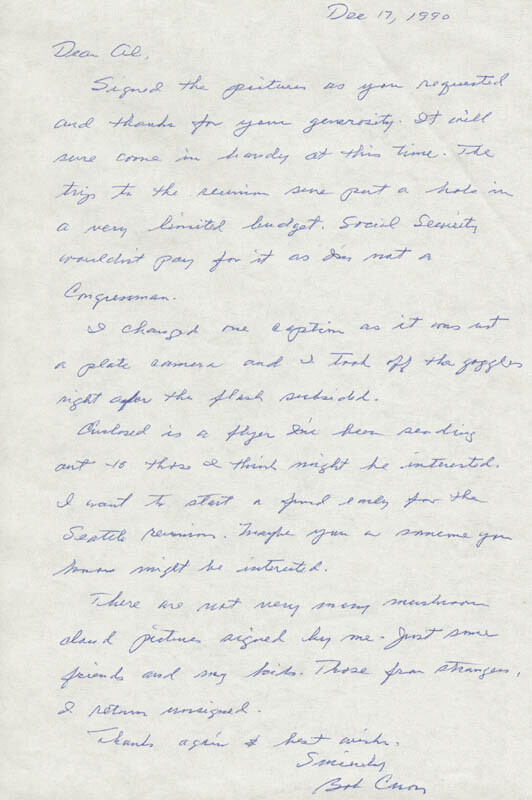 Dec 17, 1990
Dear Al,
Signed the pictures as you requested
and thanks for your generosity. It will
sure come in handy at this time. The
trip to the reunion sure put a hole in
a very limited budget. Social Security
wouldn't pay for it as I'm not a
Congressman.
I changed one caption as it was not
a plate camera and I took off the goggles
right after the flash subsided.
Enclosed is a flyer I've been sending
out to those I think might be interested.
I want to start a fund early for the
Seattle reunion. Maybe you or someone you
know might be interested.
There are not very many mushroom
cloud pictures signed by me. Just some
friends and my kids. Those from strangers,
I return unsigned.
Thanks again & best wishes.
Sincerely
Bob Caron